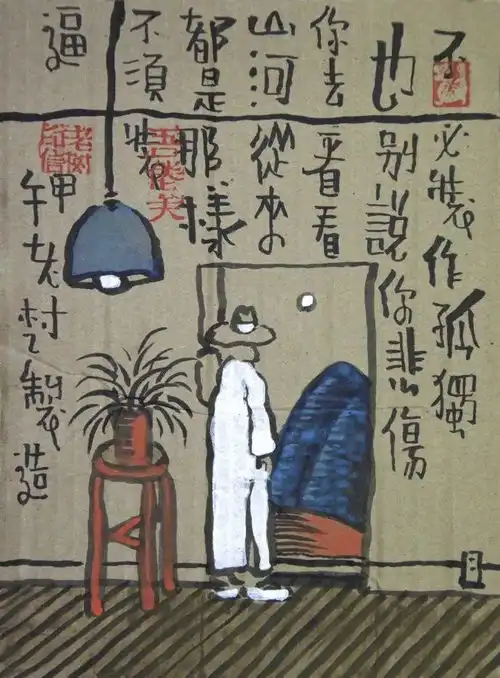 不必裝作孤獨
也別說你悲傷
你去看看
山河從來
都是那樣
不須裝
逼
甲午老村製造